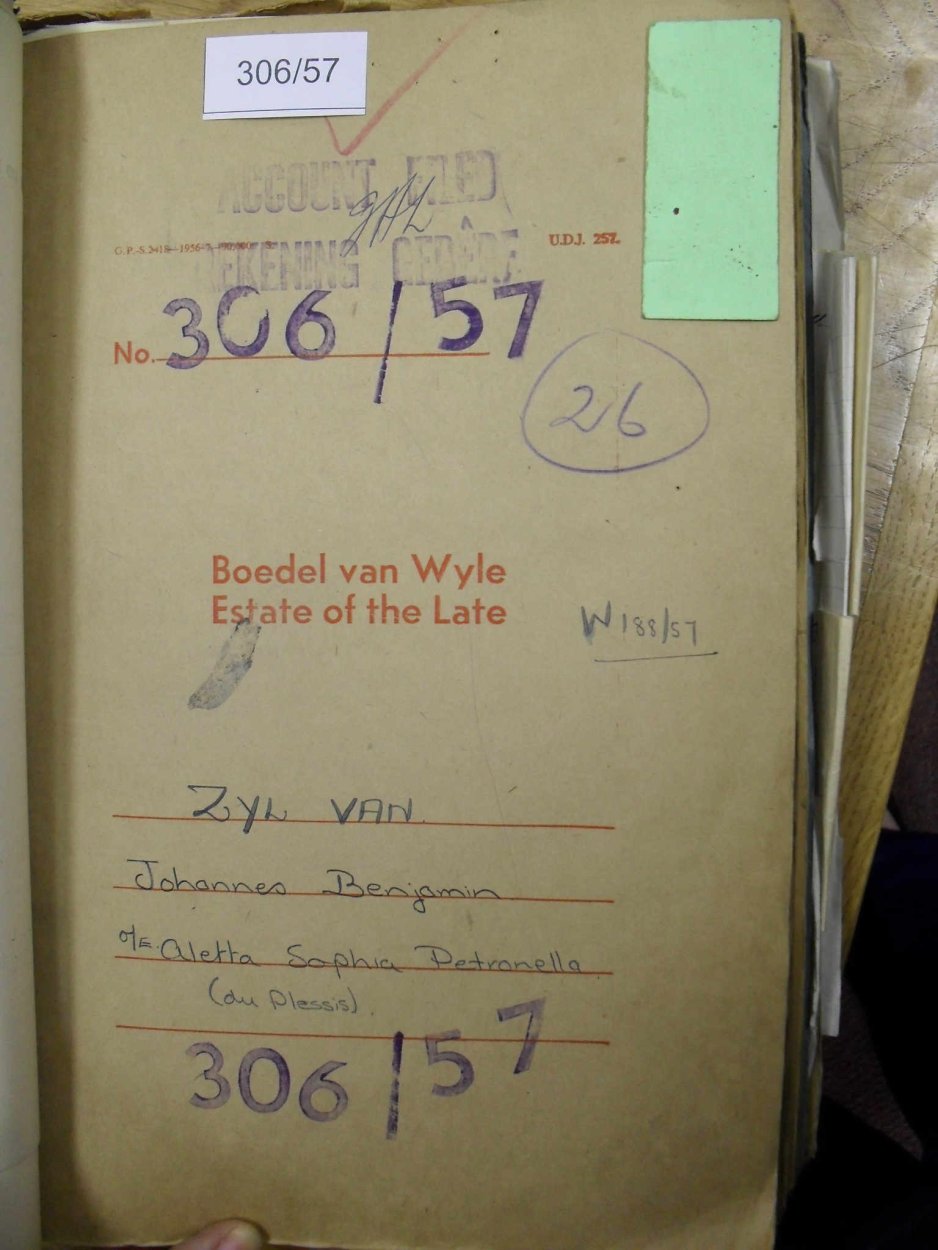 306/57
ACCOUNT FILED
G.P.-S.2418—1956-7—90,000 S.
U.D.J. 257.
REKENING GEDÊRE
No. 306/57
26
Boedel van Wyle
Estate of the Late
W188/57
ZYL VAN.
Johannes Benjamin
Aletta Sophia Petronella.
(du Plessis).
306/57